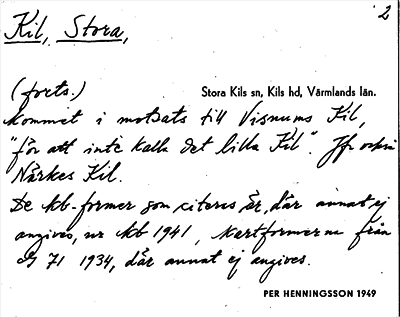 2
Kil, Stora,
(forts.)
Stora Kils sn, Kils hd, Värmlands län.
kommet i motsats till Visnums Kil,
"för att inte kalla det lilla Kil". Jfr också
Närkes Kil.
De kb-former som citeras är, där annat ej
angives, ur kb 1941, kartformerna från
71 1934, där annat ej angives.
PER HENNINGSSON 1949